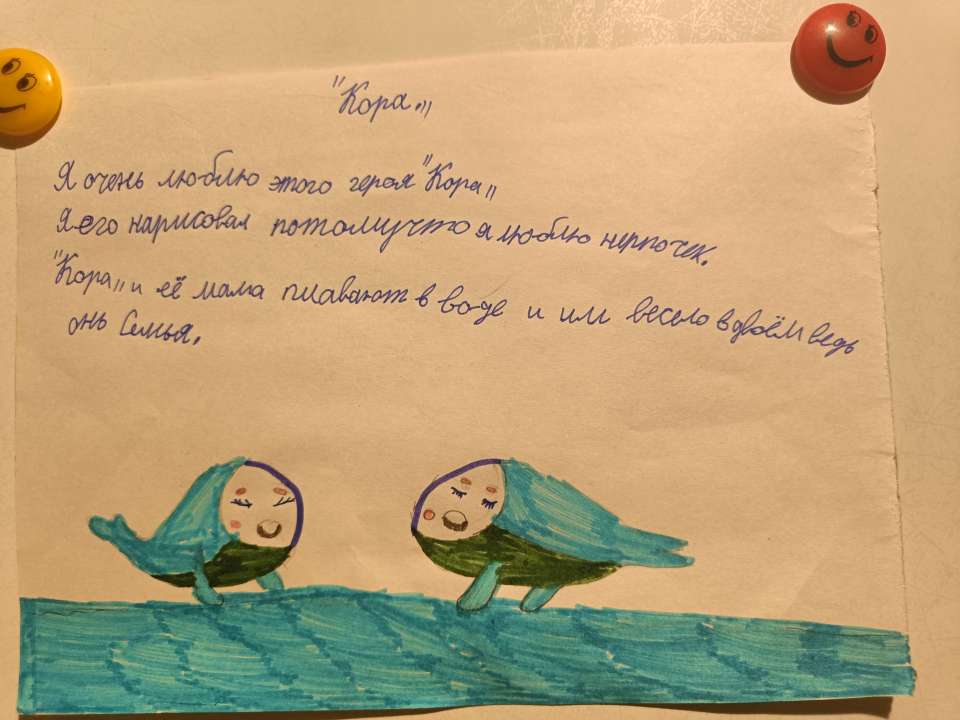 "Кора.„
Я очень люблю этого героя "Кора„
Я его нарисовал потомучто я люблю нерпочек.
"Кора„ и её мама плавают в воде и им весело вдвоём ведь
онь Семья.